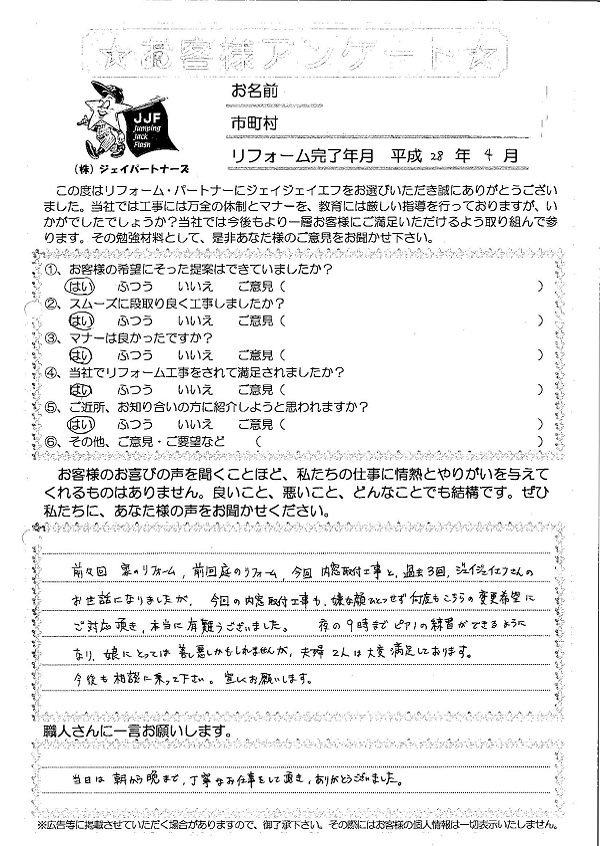 ☆お客様アンケート☆
JJF
Jumping
Jack
Flash
(株)ジェイパートナーズ
お名前
市町村
リフォーム完了年月 平成 28 年 4 月
この度はリフォーム・パートナーにジェイジェイエフをお選びいただき誠にありがとうござい
ました。当社では工事には万全の体制とマナーを、教育には厳しい指導を行っておりますが、い
かがでしたでしょうか?当社では今後もより一層お客様にご満足いただけるよう取り組んで参
ります。その勉強材料として、是非あなた様のご意見をお聞かせ下さい。
①、お客様の希望にそった提案はできていましたか?
はい ふつう いいえ ご意見( )
②、スムーズに段取り良く工事しましたか?
はい ふつう いいえ ご意見( )
③、マナーは良かったですか?
はい ふつう いいえ ご意見( )
④、当社でリフォーム工事をされて満足されましたか?
はい ふつう いいえ ご意見( )
⑤、ご近所、お知り合いの方に紹介しようと思われますか?
はい ふつう いいえ ご意見( )
⑥、その他、ご意見・ご要望など ( )
お客様のお喜びの声を聞くことほど、私たちの仕事に情熱とやりがいを与えて
くれるものはありません。良いこと、悪いこと、どんなことでも結構です。ぜひ
私たちに、あなた様の声をお聞かせください。
前々回 家のリフォーム,前回庭のリフォーム,今回 内窓取付工事と,過去3回,ジェイジェイエフさんの
お世話になりましたが, 今回の内窓取付工事も,嫌な顔ひとつせず何度もこちらの変更希望に
ご対応頂き,本当に有難うございました。 夜の9時までピアノの練習ができるように
なり,娘にとっては善し悪しかもしれませんが,夫婦2人は大変満足しております。
今後も相談に乗って下さい。宜しくお願いします。
職人さんに一言お願いします。
当日は 朝から晩まで,丁寧なお仕事をして頂き,ありがとうございました。
※広告等に掲載させていただく場合がありますので、御了承下さい。その際にはお客様の個人情報は一切表示いたしません。